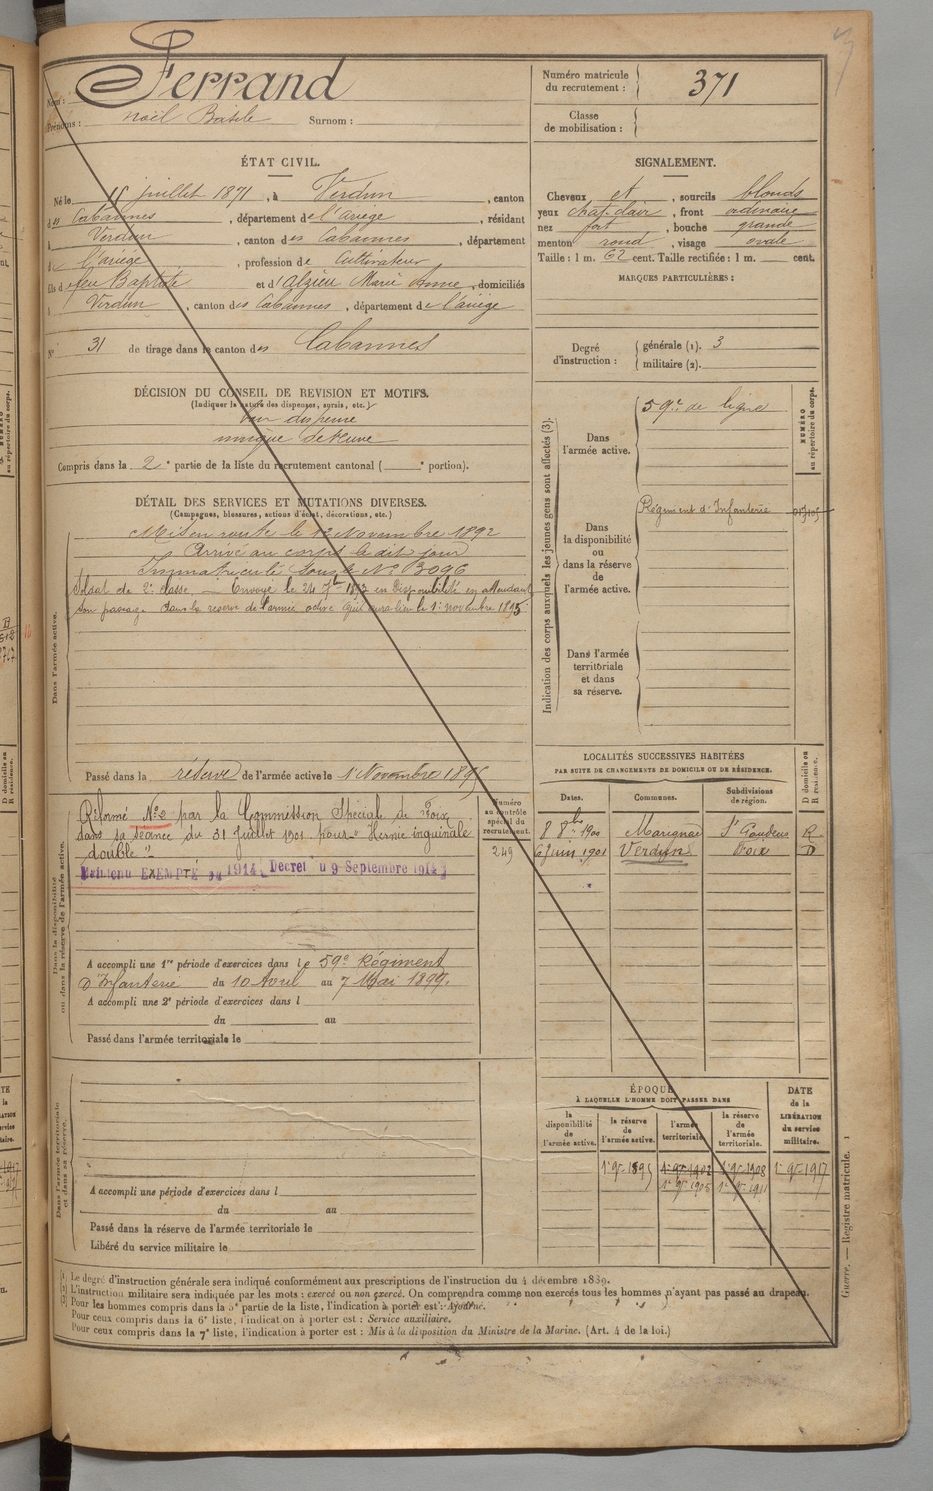 Nom : Ferrand
Prénoms : Noël Basile Surnom :
Numéro matricule du recrutement : 371
Classe de mobilisation :
ÉTAT CIVIL.
Né le 15 juillet 1871, à Verdun, canton
des Cabannes, département de l'ariege, résidant
à Verdun, canton des Cabannes, département
de l'ariège, profession de Cultivateur
fils de feu Baptiste et d'Alzieu Marie Anne, domiciliés
à Verdun, canton des Cabannes, département de l'ariège
N° 31 de tirage dans le canton des Cabannes
SIGNALEMENT.
Cheveux et, sourcils blonds
yeux chat. clair, front ordinaire
nez fort, bouche grande
menton rond, visage ovale
Taille : 1 m. 62 cent. Taille rectifiée : 1 m. cent.
MARQUES PARTICULIÈRES :
Degré d'instruction : générale (1). 3
militaire (2).
DÉCISION DU CONSEIL DE REVISION ET MOTIFS.
(Indiquer la nature des dispenses, sursis, etc.)
dispensé
unique de veuve
Compris dans la 2e partie de la liste du recrutement cantonal ( e portion).
DÉTAIL DES SERVICES ET MUTATIONS DIVERSES.
(Campagnes, blessures, actions d'éclat, décorations, etc.)
Dans l'armée active.
Mis en route le 12 Novembre 1892
Arrivé au corps le dit jour
Immatriculé sous le No 3096
Soldat de 2e classe. Envoyé le 24 7bre 1893 en disponibilité en attendant
son passage dans la réserve de l'armée active qui aura lieu le 1er novembre 1895
Passé dans la réserve de l'armée active le 1er Novembre 1895
Indication des corps auxquels les jeunes gens sont affectés (3).
NUMÉRO au répertoire du corps.
Dans l'armée active. 59e de ligne
Dans la disponibilité ou dans la réserve de l'armée active. Régiment d'Infanterie
Dans l'armée territoriale et dans sa réserve.
Dans la disponibilité ou dans la réserve de l'armée active.
Numéro au contrôle spécial du recrutement.
249
Réformé No 2 par la Commission Spécial de Foix
dans sa séance du 31 Juillet 1901 pour "Hernie inguinale
double"
Maintenu EXEMPTÉ 1914 Décret du 9 Septembre 1914
A accompli une 1re période d'exercices dans le 59e Régiment
d'Infanterie du 10 Avril au 7 Mai 1899.
A accompli une 2e période d'exercices dans l
du au
Passé dans l'armée territoriale le
LOCALITÉS SUCCESSIVES HABITÉES
PAR SUITE DE CHANGEMENTS DE DOMICILE OU DE RÉSIDENCE.
Dates. Communes. Subdivisions de région. D domicile ou R résidence.
8 8bre 1900 Marignac St Gaudens R
6 juin 1901 Verdun Foix D
Dans l'armée territoriale et dans sa réserve.
A accompli une période d'exercices dans l
du au
Passé dans la réserve de l'armée territoriale le
Libéré du service militaire le
ÉPOQUE
À LAQUELLE L'HOMME DOIT PASSER DANS
DATE de la LIBÉRATION du service militaire.
la disponibilité de l'armée active. la réserve de l'armée active. l'armée territoriale. la réserve de l'armée territoriale.
1er 9re 1895 1er 9re 1902 1er 9re 1908 1er 9re 1917
1er 9re 1905 1er 9re 1911
(1) Le degré d'instruction générale sera indiqué conformément aux prescriptions de l'instruction du 4 décembre 1889.
(2) L'instruction militaire sera indiquée par les mots : exercé ou non exercé. On comprendra comme non exercés tous les hommes n'ayant pas passé au drapeau.
(3) Pour les hommes compris dans la 5e partie de la liste, l'indication à porter est : Ajourné.
Pour ceux compris dans la 6e liste, l'indication à porter est : Service auxiliaire.
Pour ceux compris dans la 7e liste, l'indication à porter est : Mis à la disposition du Ministre de la Marine. (Art. 4 de la loi.)
Guerre. — Registre matricule. 1